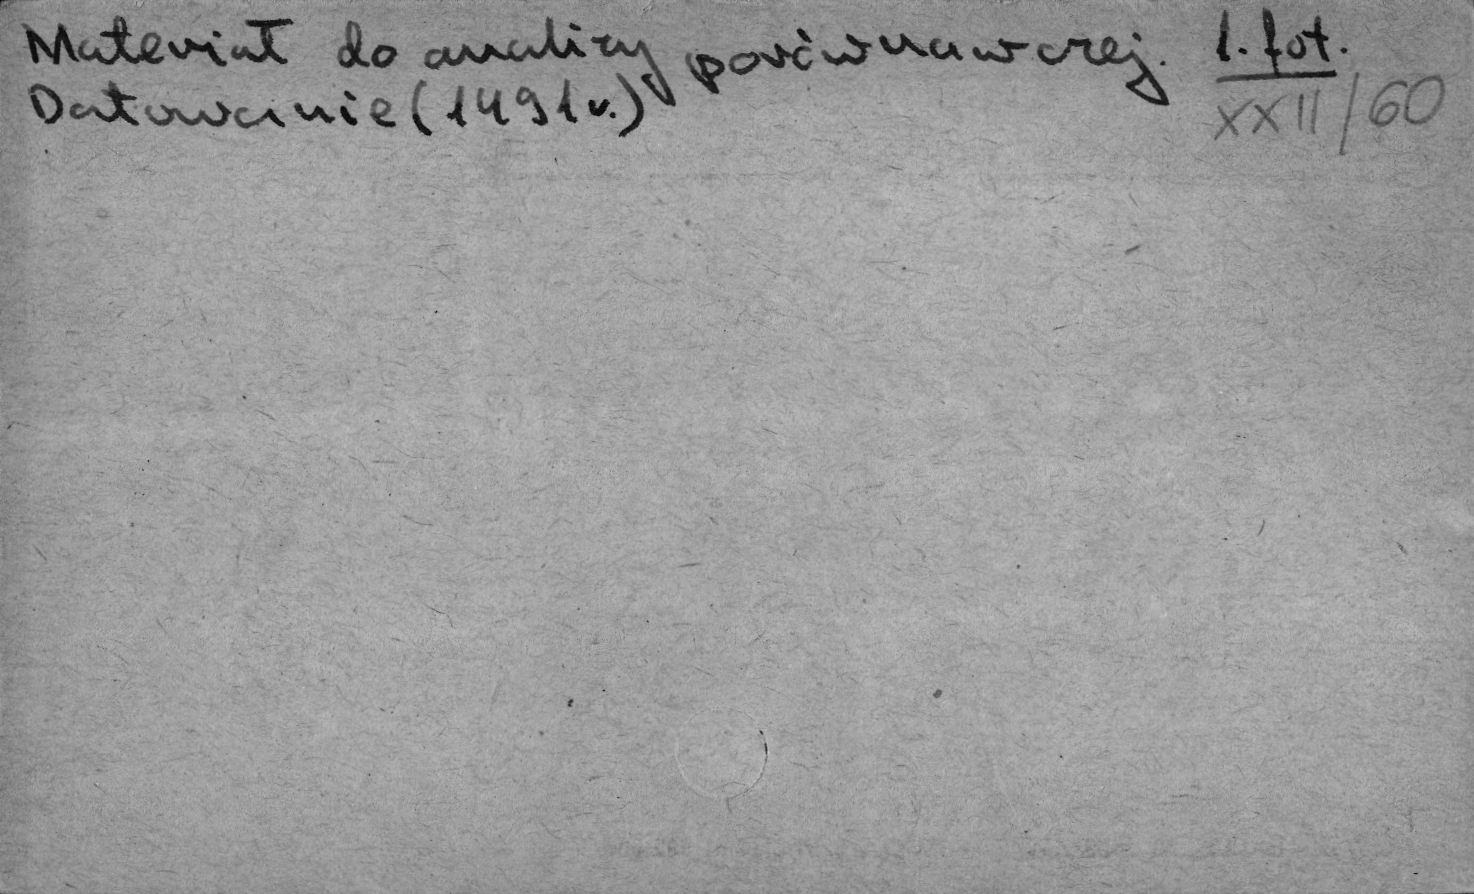 Materiał do analizy porównawczej. 1. fot.
Datowanie (1491 r.)
XXII/60